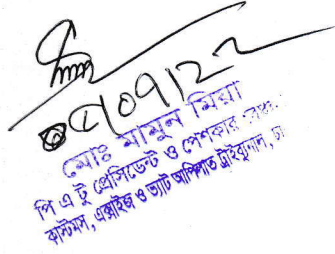 ০৭/০৭/২২
মোঃ মামুন মিয়া
পি এ টু প্রেসিডেন্ট ও পেশকার
কাস্টমস, এক্সাইজ ও ভ্যাট আপিলাত ট্রাইব্যুনাল,